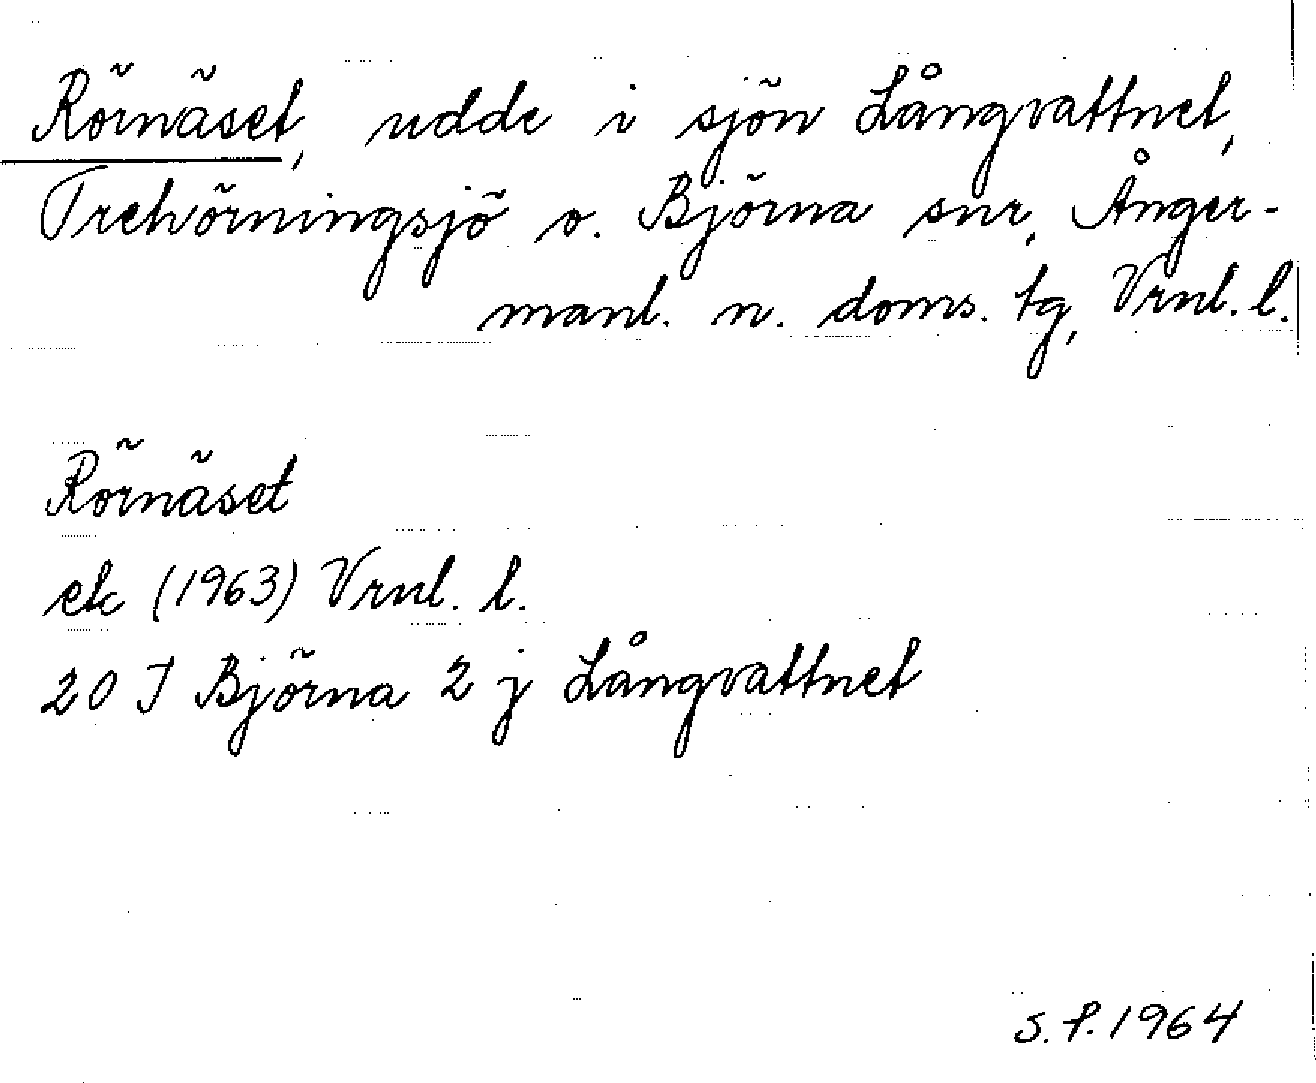 Rörnäset, udde i sjön Långvattnet,
Trehörningsjö o. Björna snr, Ånger-
manl. n. doms. tg, Vrnl. l.
Rörnäset
ek (1963) Vrnl. l.
20 J Björna 2 j Långvattnet
S. P. 1964